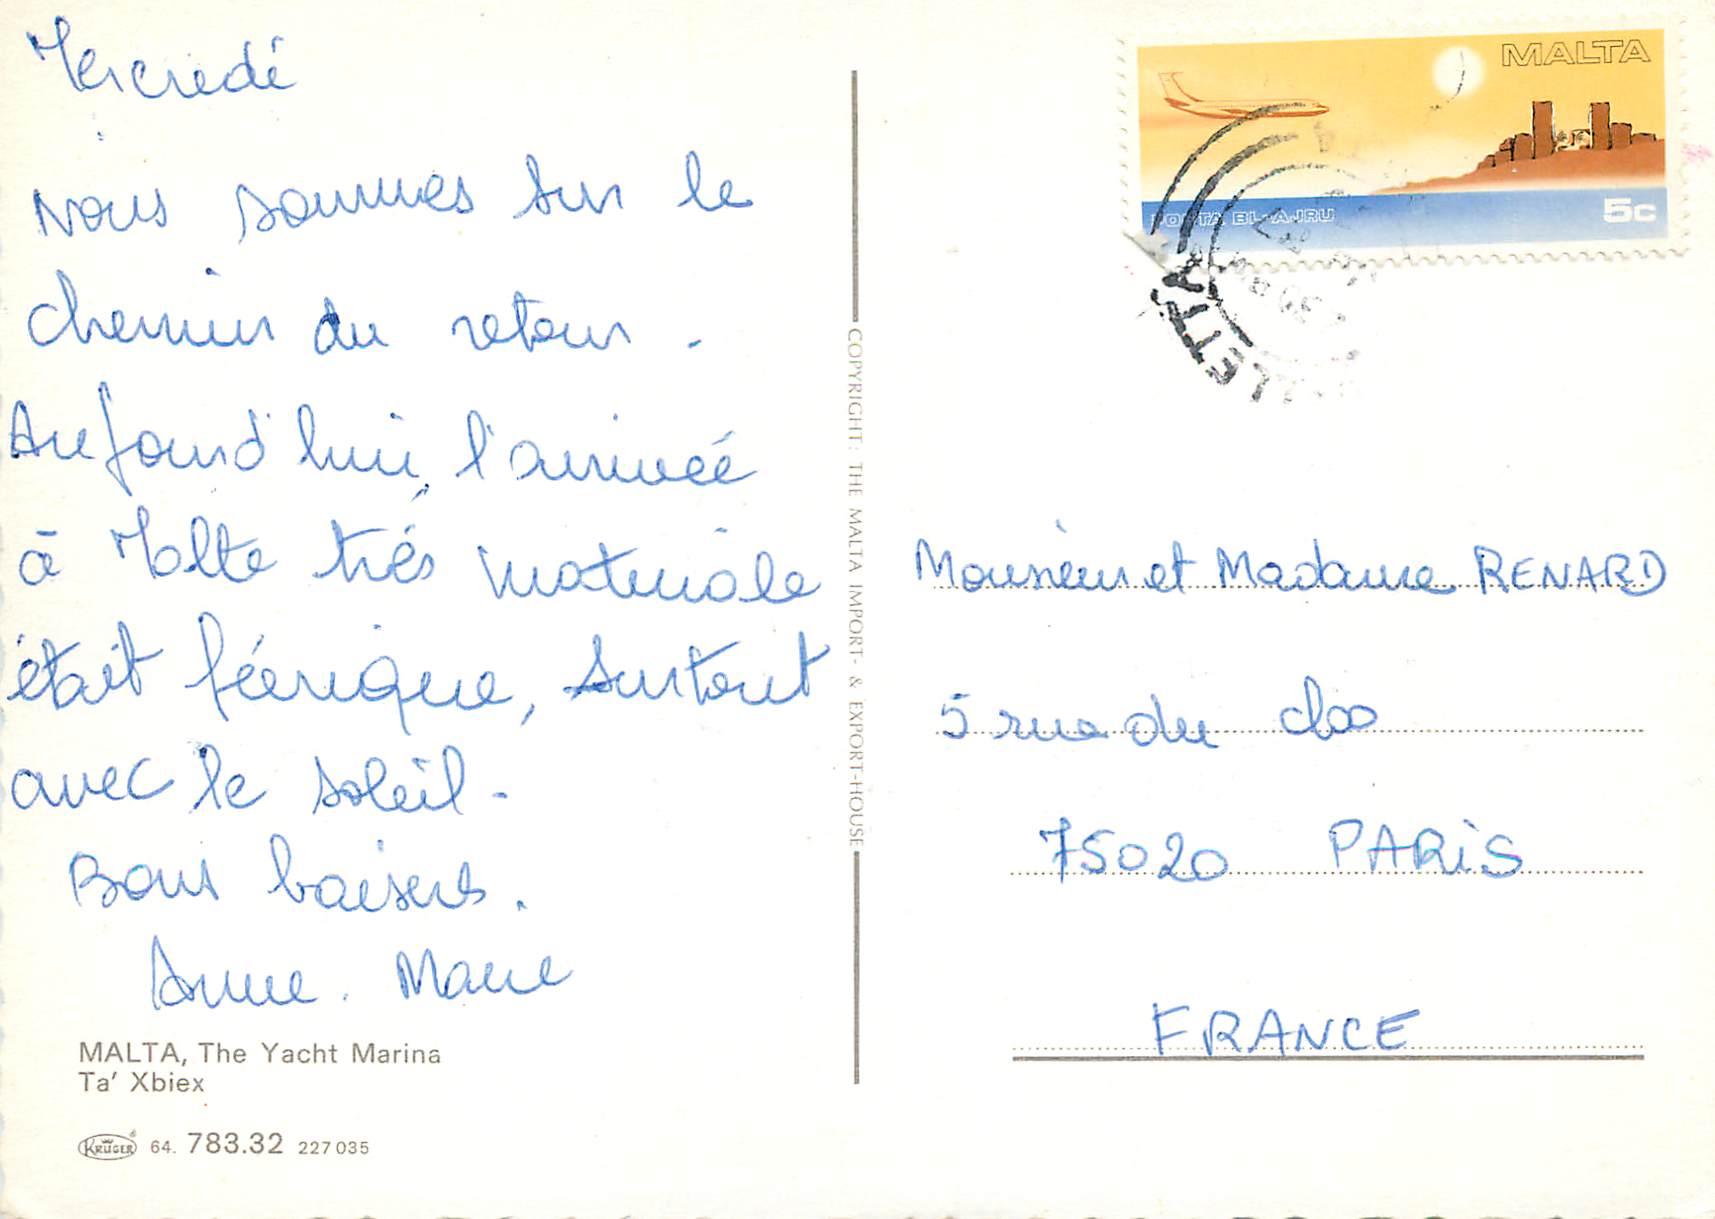 Mercredi
Nous sommes sur le
chemin du retour.
Aujourd'hui, l'arrivée
à Malte très matinale
était féerique, surtout
avec le soleil.
Bons baisers.
Anne. Marie
MALTA, The Yacht Marina
Ta' Xbiex
KRÜGER 64. 783.32 227 035
COPYRIGHT: THE MALTA IMPORT- & EXPORT-HOUSE
MALTA
POSTA BL-AJRU 5c
Monsieur et Madame RENARD
5 rue du clos
75020 PARIS
FRANCE